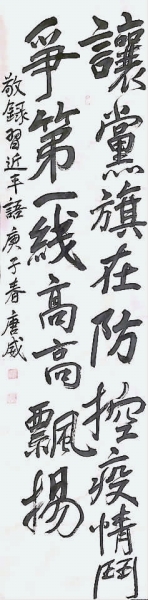 讓黨旗在防控疫情鬥
爭第一线高高飄揚
敬録習近平語庚子春唐威